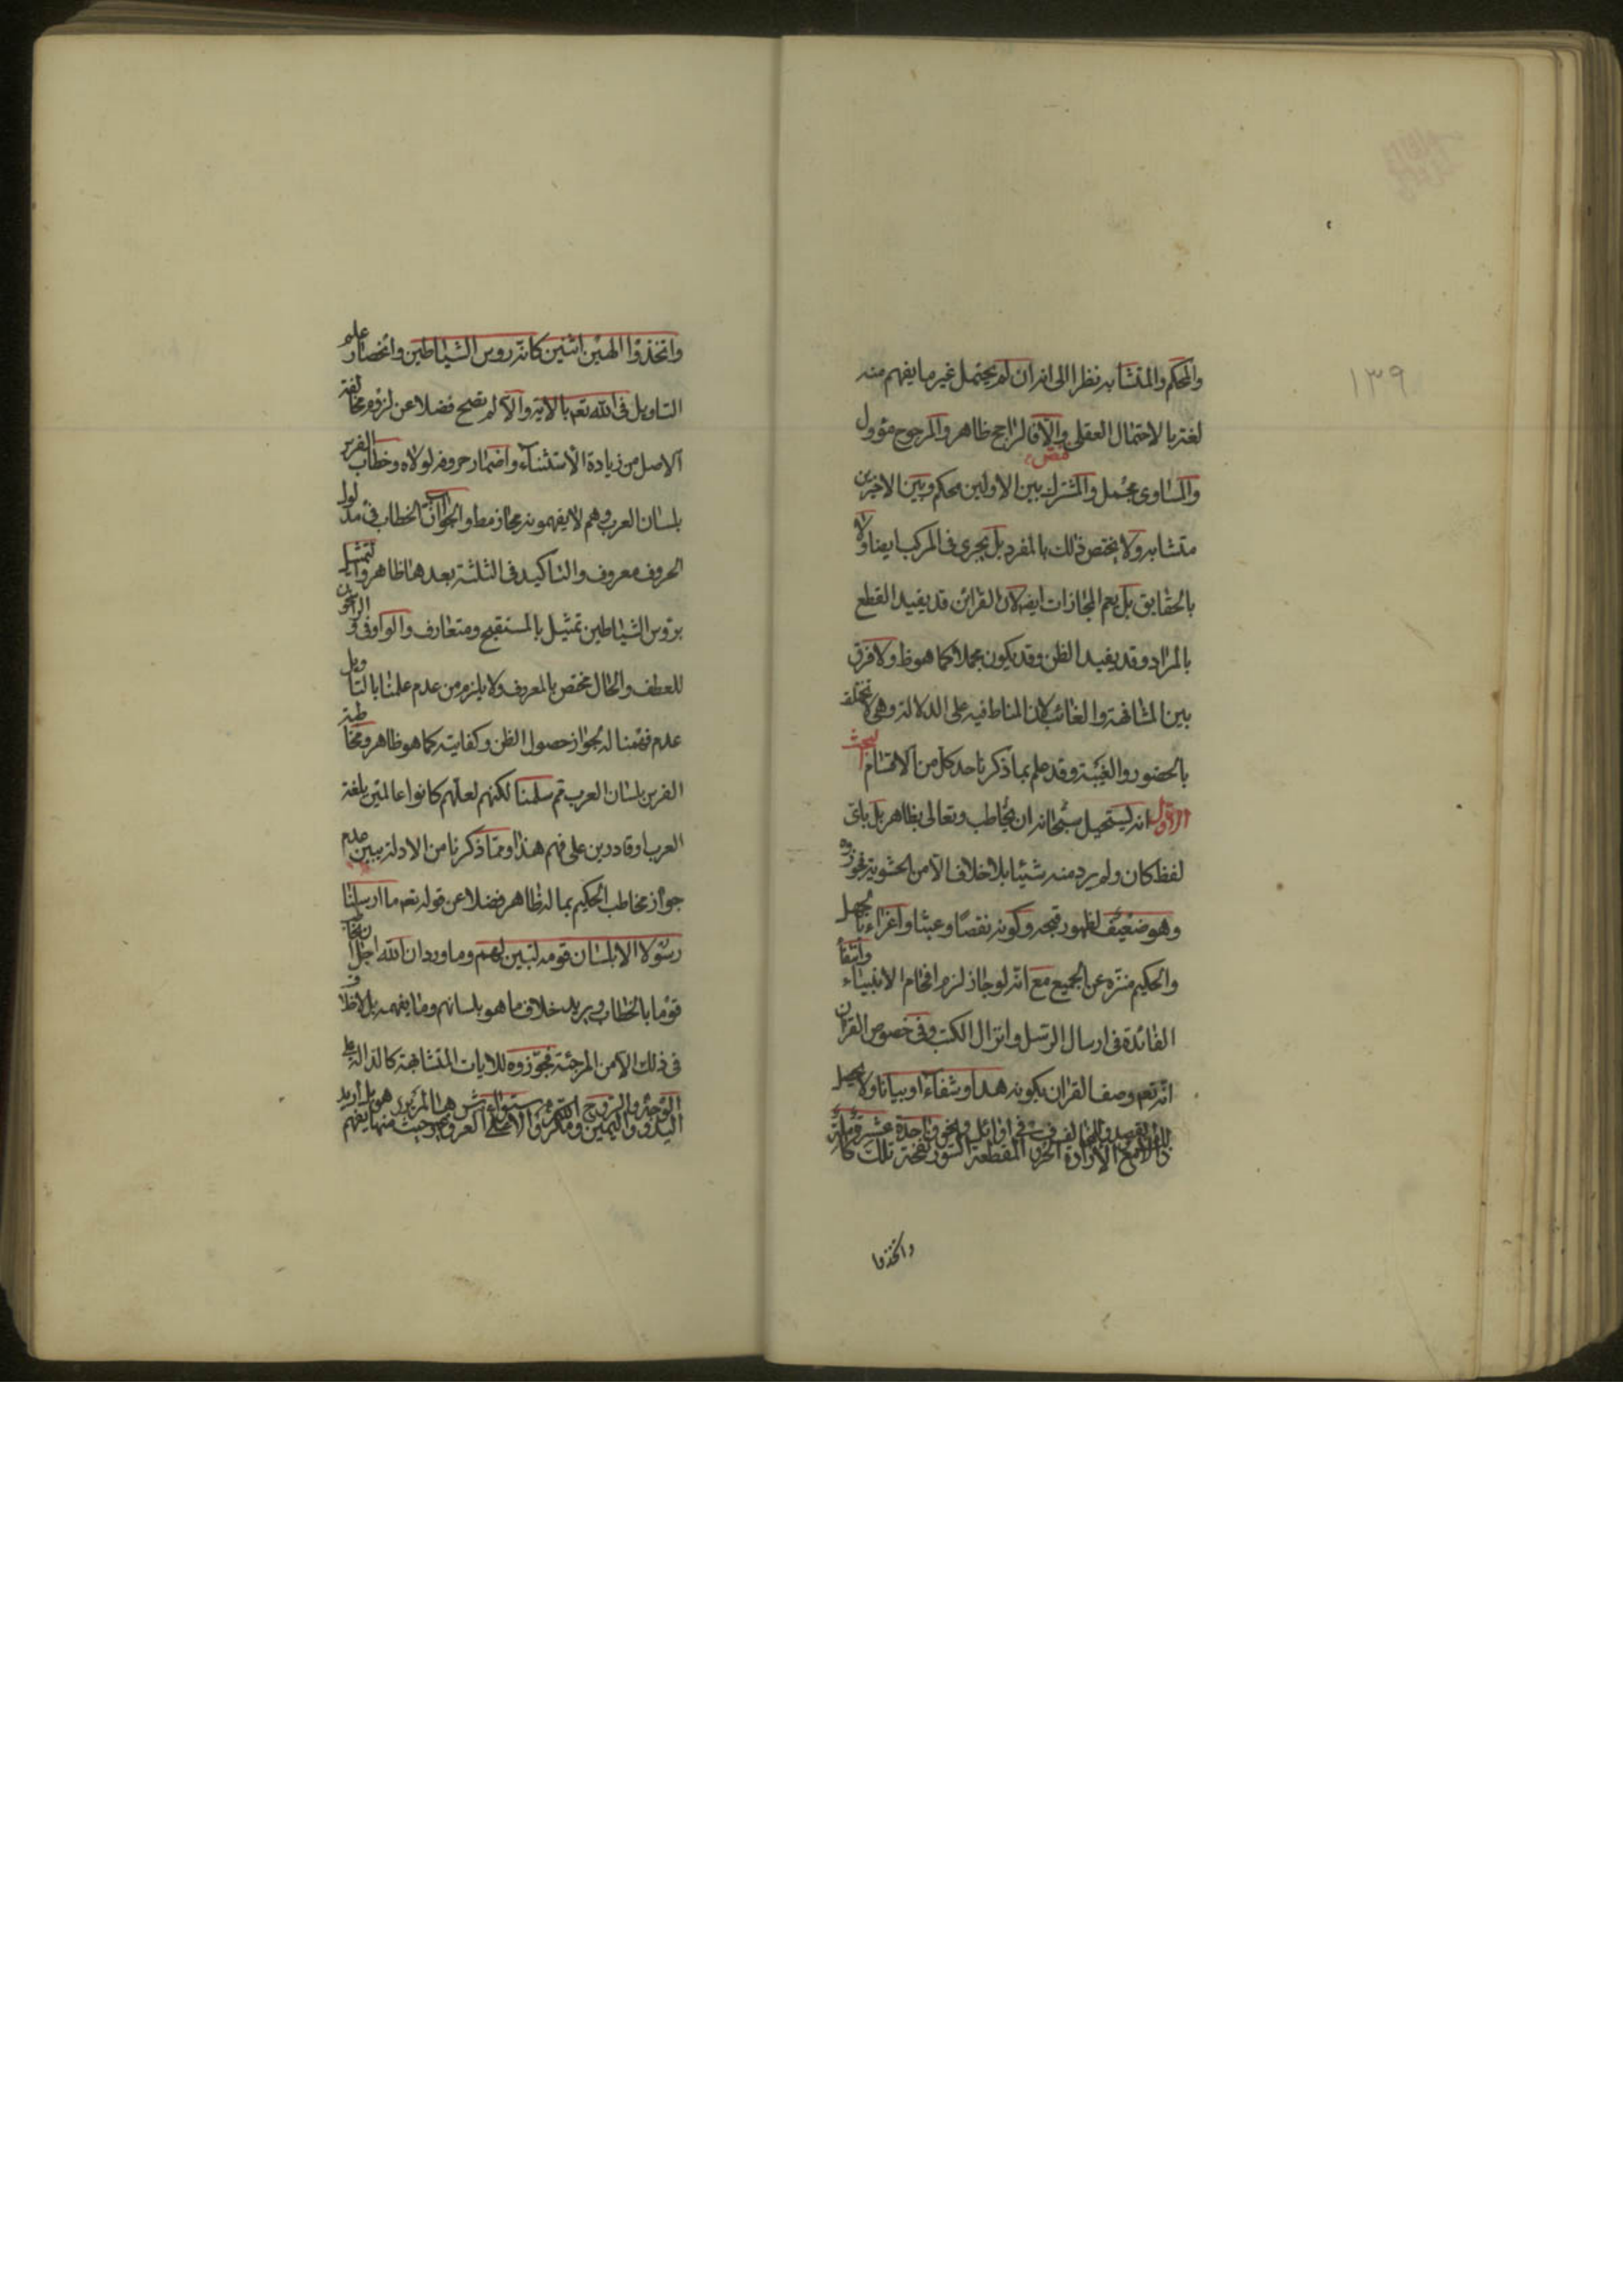 ١٣٩
والمحكم والمتشابه نظرا الى انه ان لم يحتمل غير ما يفهم منه
لغة بالاحتمال العقلى والا فالراجح ظاهر والمرجوح مؤول
نص
والمساوى مجمل والمشترك بين الاولين محكم وبين الاخرين
متشابه ولا يختص ذلك بالمفرد بل يجرى فى المركب ايضا ولا
بالحقايق بل يعم المجازات ايضا لان القرائن قد يفيد القطع
بالمراد وقد يفيد الظن وقد يكون مجملا كما هو ظ ولا فرق
بين المشافهة والغائب لان المناط فيه على الدلالة وهى لا تختلف
بالحضور والغيبة وقد علم بما ذكرنا حد كل من الاقسام البحث
الاول انه يستحيل سبحانه ان يخاطب وتعالى بظاهر بل باى
لفظ كان ولم يرد منه شيئا بلا خلاف الا من الحشوية فجوزوه
وهو ضعيف لظهور قبحه وكونه نقصا وعبثا واغراء بالجهل
والحكيم منزه عن الجميع مع انه لو جاز لزم افحام الانبياء وانتفاء
الفائدة فى ارسال الرسل وانزال الكتب وفى خصوص القران
انه تعم وصف القران بكونه هدا وشفاء او بيانا ولا يحصل
ذلك الا مع الارادة
الحروف المقطعة
السور
نفخة
تلك
واتخذوا
واتخذوا الهين اثنين كانه روس الشياطين وانحصار علم
التاويل فى الله تعم بالاية والا لم تصح فضلا عن لزوم مخالفة
الاصل من زيادة الاستثناء واضمار حروف لولاه وخطاب الفرس
بلسان العرب وهم لا يفهمونه مجاز مط والجواب ان الخطاب فى مدلول
الحروف معروف والتاكيد فى الثلثة بعدها ظاهر والتمثيل
بروس الشياطين تمثيل بالمستقبح ومتعارف والواو فى والراسخون
للعطف والحال مختص بالمعروف ولا يلزم من عدم علمنا بالتاويل
عدم فهمنا له لجواز حصول الظن وكفايته كما هو ظاهر ومخاطبة
الفرس بلسان العرب ثم سلمنا لكنهم لعلهم كانوا عالمين بلغة
العرب او قادرين على فهم هذا ومما ذكرنا من الادلة يبين عدم
جواز مخاطب الحكيم بما له ظاهر فضلا عن قوله تعم ما ارسلنا
رسولا الا بلسان قومه لتبين لهم وما ورد ان الله اجل ان يخاطب
قوما بالخطاب ويريد خلاف ما هو بلسانهم وما يفهمه بلا خلاف
فى ذلك الا من المرجئة فجوزوه للايات المتشابهة كالدالة على
اليد
واليمين